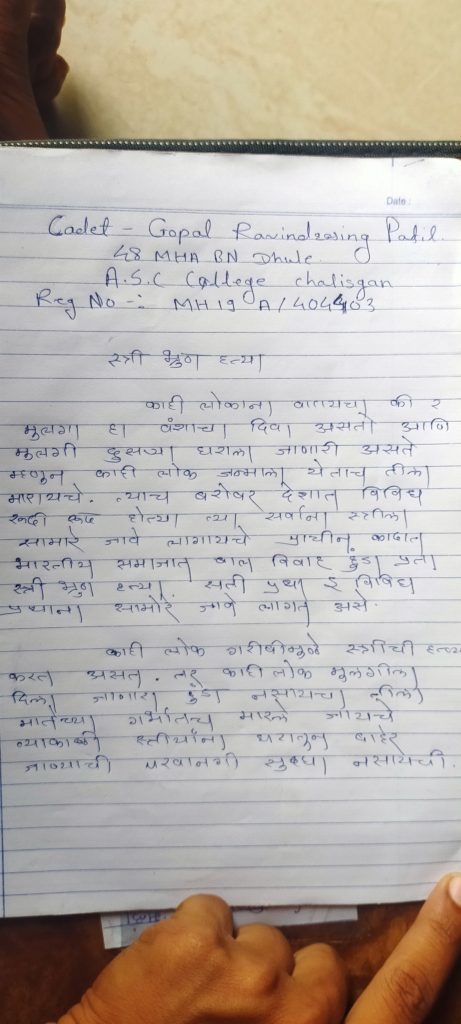 Date :
Cadet - Gopal Ravindrasing Patil.
48 MHA BN Dhule.
A.S.C College chalisgan
Reg No -: MH19 A/404403
स्त्री भ्रुण हत्या
काही लोकांना वाटायचा की
मुलगा हा वंशाचा दिवा असतो आणि
मुलगी दुसऱ्या घराला जाणारी असते
म्हणून काही लोक जन्माला येताच तीला
मारायचे. त्याच बरोबर देशात विविध
रूढी रूढ होत्या त्या सर्वांना स्त्रीला
सामोरे जावे लागायचे प्राचीन काळात
भारतीय समाजात बाल विवाह हुंडा प्रता
स्त्री भ्रुण हत्या, सती प्रथा इ विविध
प्रथांना सामोरे जावे लागत असे.
काही लोक गरीबीमुळे स्त्रीची हत्या
करत असत. तर काही लोक मुलगीला
दिला जाणारा हुंडा नसायचा तीला
मातेच्या गर्भातच मारले जायचे
त्याकाळी स्त्रीयांना घरातून बाहेर
जाण्याची परवानगी सुध्दा नसायची.